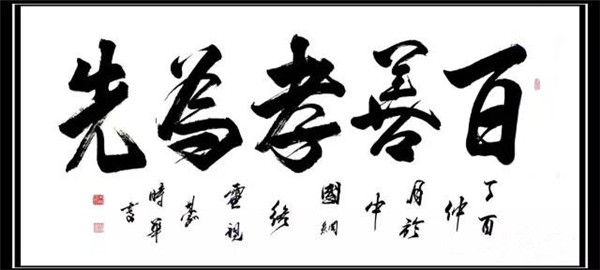 百善孝為先
丁酉
仲
月於
中
國網
絡
電視
臺
時華
書